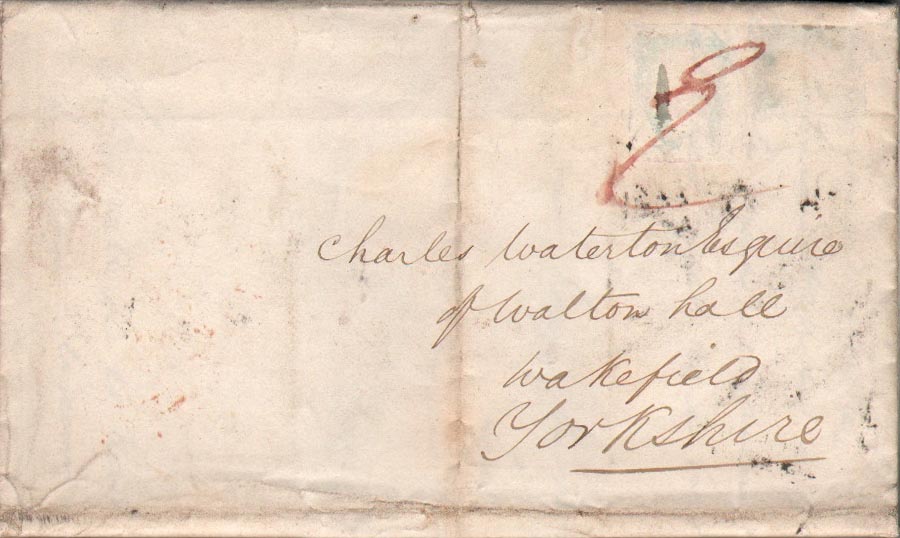 Charles Waterton Esquire
of Walton hall
Wakefield
Yorkshire